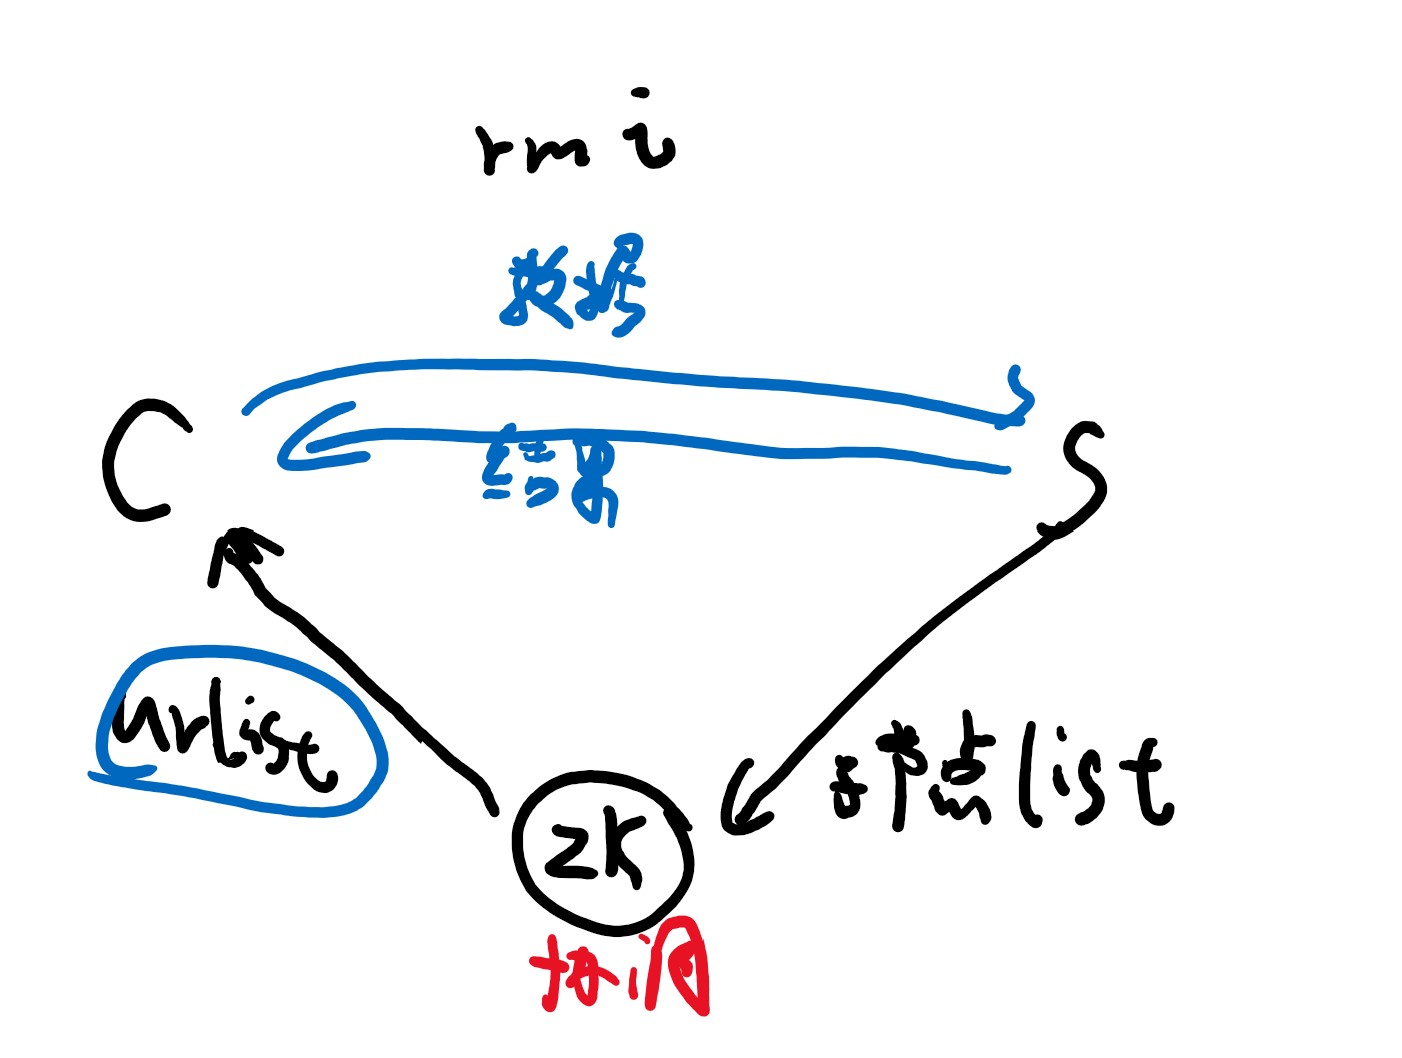 rmi
数据
C
S
结果
urlist
子节点list
zk
协调